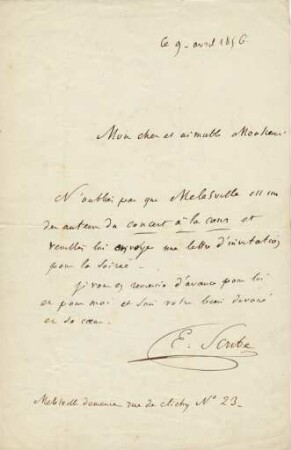 le 9 avril 1856
Mon cher et aimable Monsieur
N'oubliez pas que Mélesville est un
des auteurs du concert à la cour et
veuillez lui envoyer une lettre d'invitation
pour la soirée -
Je vous en remercie d'avance pour lui
et pour moi et suis votre bien dévoué
et de cœur.
E. Scribe
Mélesville demeure rue de Clichy N° 23 -